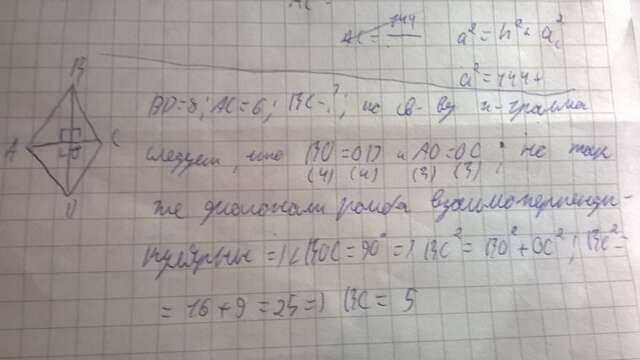 AC = 144
a² = h² + a²c
a² = 144 +
B
A
C
O
D
BD=8; AC=6; BC-?; из св-ву п-грамма
следует, что BO=OD и AO=OC; но так
(4) (4) (3) (3)
же диагонали ромба взаимоперпенди-
кулярны => ∠BOC=90° => BC² = BO² + OC²; BC² =
= 16 + 9 = 25 => BC = 5